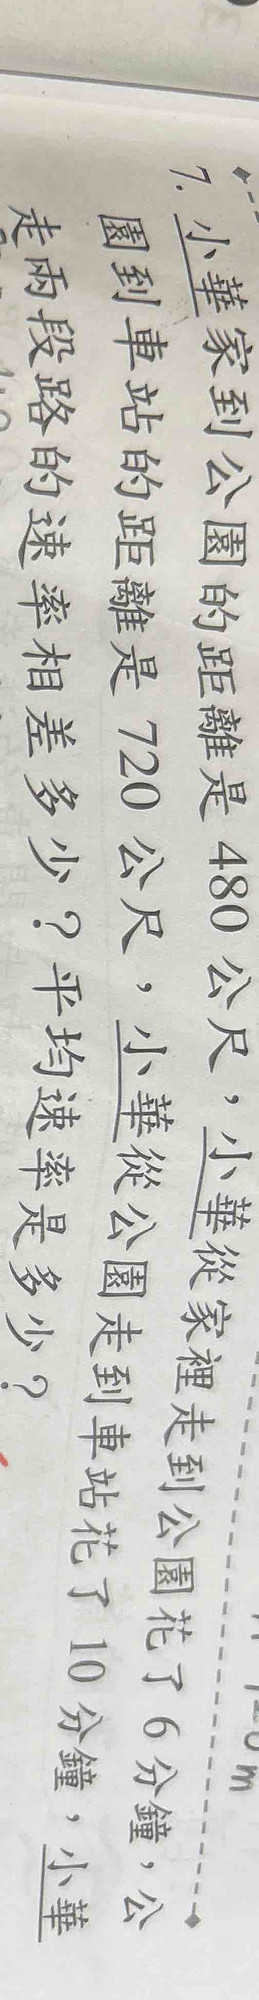 7. 小華家到公園的距離是 480 公尺，小華從家裡走到公園花了 6 分鐘，公
園到車站的距離是 720 公尺，小華從公園走到車站花了 10 分鐘，小華
走兩段路的速率相差多少？平均速率是多少？